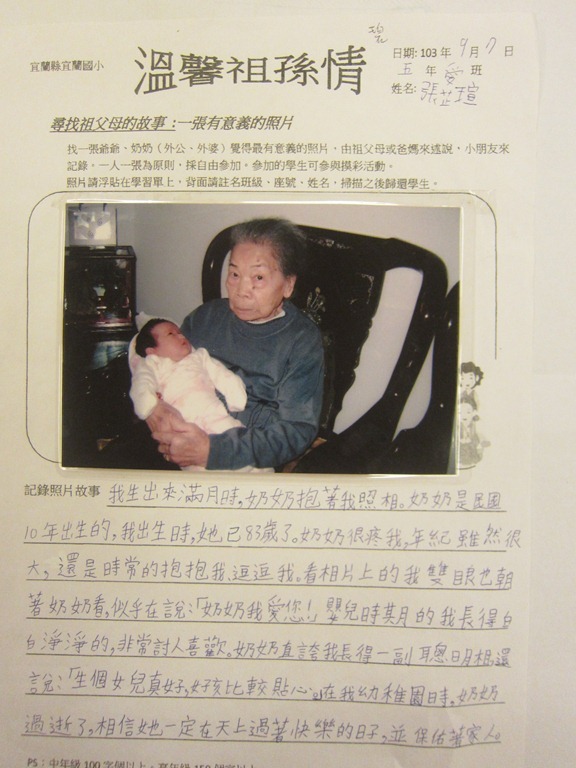 宜蘭縣宜蘭國小
溫馨祖孫情
日期: 103 年 9 月 7 日
五 年 愛 班
姓名: 張芷瑄
尋找祖父母的故事:一張有意義的照片
找一張爺爺、奶奶（外公、外婆）覺得最有意義的照片，由祖父母或爸媽來述說，小朋友來
記錄。一人一張為原則，採自由參加。參加的學生可參與摸彩活動。
照片請浮貼在學習單上，背面請註名班級、座號、姓名，掃描之後歸還學生。
記錄照片故事 我生出來滿月時,奶奶抱著我照相。奶奶是民國
10年出生的,我出生時,她已83歲了。奶奶很疼我,年紀雖然很
大,還是時常的抱抱我、逗逗我。看相片上的我雙眼也朝
著奶奶看,似乎在說:「奶奶我愛您!」嬰兒時其月的我長得白
白淨淨的,非常討人喜歡。奶奶直誇我長得一副聰明相,還
言說:「生個女兒真好,女孩比較貼心。」在我幼稚園時,奶奶
過逝了,相信她一定在天上過著快樂的日子,並保佑著家人。
PS：中年級 100 字個以上。高年級 150 個字以上